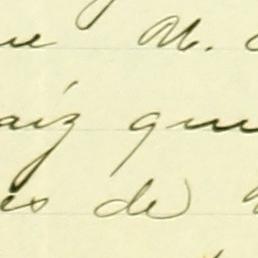 ue M.
aiz que
es de